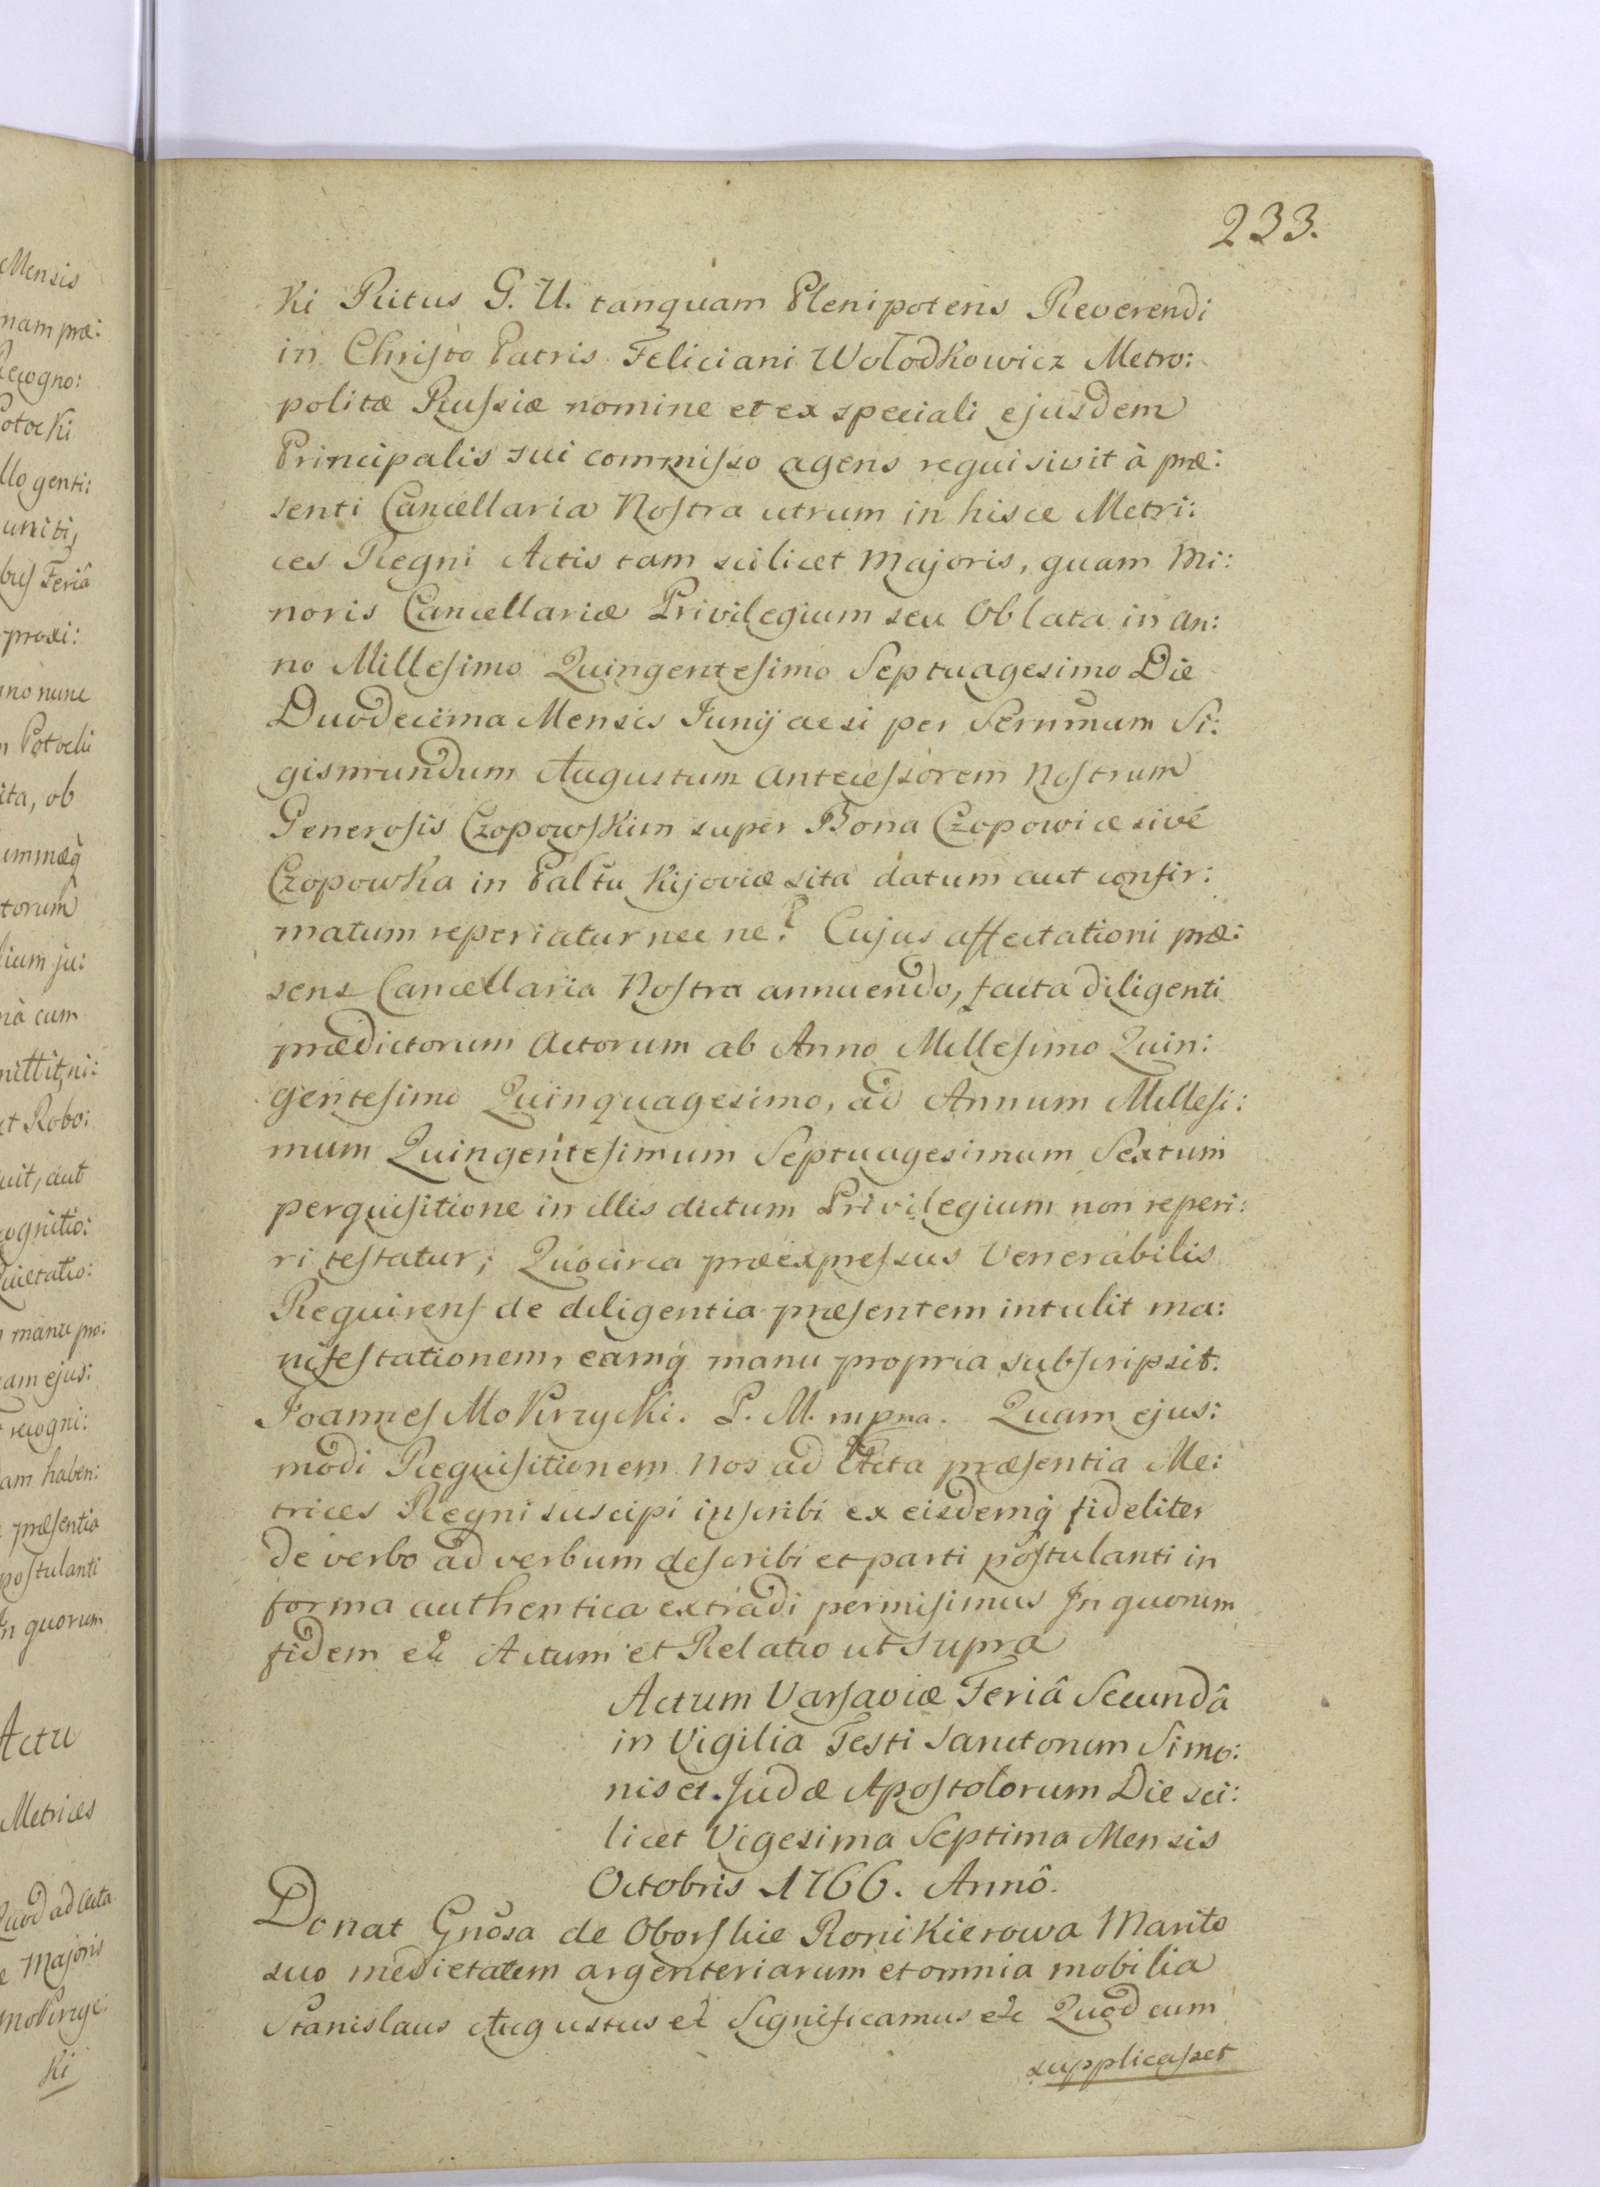 233.
ki Ritus G. U. tanquam Plenipotens Reverendi
in Christo Patris Feliciani Wołodkowicz Metro:
politæ Russiæ nomine et ex speciali ejusdem
Principalis sui commisso agens requisivit à præ:
senti Cancellaria Nostra utrum in hisce Metri:
ces Regni Actis tam scilicet Majoris, quam Mi:
noris Cancellariæ Privilegium seu Oblata in An:
no Millesimo Quingentesimo Septuagesimo Die
Duodecima Mensis Junij ac si per Sernmum Si:
gismundum Augustum Antecessorem Nostrum
Generosis Czopowskim super Bona Czopowice sivè
Czopowka in Paltu Kijoviæ sita datum aut confir:
matum reperiatur nec ne? Cujus affectationi præ:
sens Cancellaria Nostra annuendo, facta diligenti
prædictorum Actorum ab Anno Millesimo Quin:
gentesimo Quinquagesimo, ad Annum Millesi:
mum Quingentesimum Septuagesimum Sextum
perquisitione in illis dictum Privilegium non reperi:
ri testatur; Quocirca præexpressus Venerabilis
Requirens de diligentia præsentem intulit ma:
nifestationem, eamq̃ manu propria subscripsit.
Joannes Mokrzycki. P. M. mpria. Quam ejus:
modi Requisitionem Nos ad Acta præsentia Me:
trices Regni suscipi inscribi ex eisdemq̃ fideliter
de verbo ad verbum describi et parti postulanti in
forma authentica extradi permisimus In quorum
fidem etc Actum et Relatio ut supra
Actum Varsaviæ Feriâ Secundâ
in Vigilia Festi Sanctorum Simo:
nis et Judæ Apostolorum Die sci:
licet Vigesima Septima Mensis
Octobris 1766. Annô.
Donat Gnosa de Oborskie Ronikierowa Marito
suo medietatem argenteriarum et omnia mobilia
Stanislaus Augustus etc Significamus etc Quod cum
supplicasset